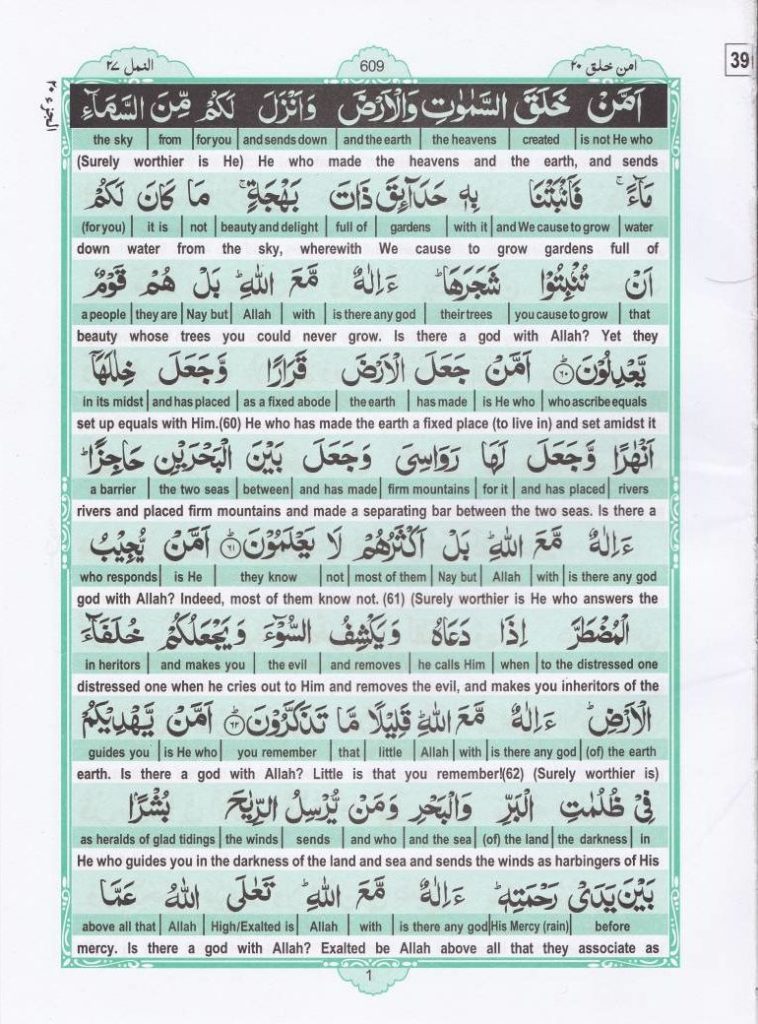 النمل ٢٧
609
امن خلق ٢٠
39
الجزء ٢٠
اَمَّنْ خَلَقَ السَّمٰوٰتِ وَالْاَرْضَ وَاَنْزَلَ لَكُمْ مِّنَ السَّمَآءِ
the sky | from | for you | and sends down | and the earth | the heavens | created | is not He who
(Surely worthier is He) He who made the heavens and the earth, and sends
مَآءً ۚ فَاَنْۢبَتْنَا بِهٖ حَدَآئِقَ ذَاتَ بَهْجَةٍ ۚ مَا كَانَ لَكُمْ
(for you) | it is | not | beauty and delight | full of | gardens | with it | and We cause to grow | water
down water from the sky, wherewith We cause to grow gardens full of
اَنْ تُنْۢبِتُوْا شَجَرَهَا ؕ ءَاِلٰهٌ مَّعَ اللّٰهِ ؕ بَلْ هُمْ قَوْمٌ
a people | they are | Nay but | Allah | with | is there any god | their trees | you cause to grow | that
beauty whose trees you could never grow. Is there a god with Allah? Yet they
يَّعْدِلُوْنَ ؕ ۶۰ اَمَّنْ جَعَلَ الْاَرْضَ قَرَارًا وَّجَعَلَ خِلٰلَهَآ
in its midst | and has placed | as a fixed abode | the earth | has made | is He who | who ascribe equals
set up equals with Him.(60) He who has made the earth a fixed place (to live in) and set amidst it
اَنْهٰرًا وَّجَعَلَ لَهَا رَوَاسِىَ وَجَعَلَ بَيْنَ الْبَحْرَيْنِ حَاجِزًا ؕ
a barrier | the two seas | between | and has made | firm mountains | for it | and has placed | rivers
rivers and placed firm mountains and made a separating bar between the two seas. Is there a
ءَاِلٰهٌ مَّعَ اللّٰهِ ؕ بَلْ اَكْثَرُهُمْ لَا يَعْلَمُوْنَ ؕ ۶۱ اَمَّنْ يُّجِيْبُ
who responds | is He | they know | not | most of them | Nay but | Allah | with | is there any god
god with Allah? Indeed, most of them know not. (61) (Surely worthier is He who answers the
الْمُضْطَرَّ اِذَا دَعَاهُ وَيَكْشِفُ السُّوْٓءَ وَيَجْعَلُكُمْ خُلَفَآءَ
in heritors | and makes you | the evil | and removes | he calls Him | when | to the distressed one
distressed one when he cries out to Him and removes the evil, and makes you inheritors of the
الْاَرْضِ ؕ ءَاِلٰهٌ مَّعَ اللّٰهِ ؕ قَلِيْلًا مَّا تَذَكَّرُوْنَ ؕ ۶۲ اَمَّنْ يَّهْدِيْكُمْ
guides you | is He who | you remember | that | little | Allah | with | is there any god | (of) the earth
earth. Is there a god with Allah? Little is that you remember!(62) (Surely worthier is)
فِىْ ظُلُمٰتِ الْبَرِّ وَالْبَحْرِ وَمَنْ يُّرْسِلُ الرِّيٰحَ بُشْرًۢا
as heralds of glad tidings | the winds | sends | and who | and the sea | (of) the land | the darkness | in
He who guides you in the darkness of the land and sea and sends the winds as harbingers of His
بَيْنَ يَدَىْ رَحْمَتِهٖ ؕ ءَاِلٰهٌ مَّعَ اللّٰهِ ؕ تَعٰلَى اللّٰهُ عَمَّا
above all that | Allah | High/Exalted is | Allah | with | is there any god | His Mercy (rain) | before
mercy. Is there a god with Allah? Exalted be Allah above all that they associate as
1